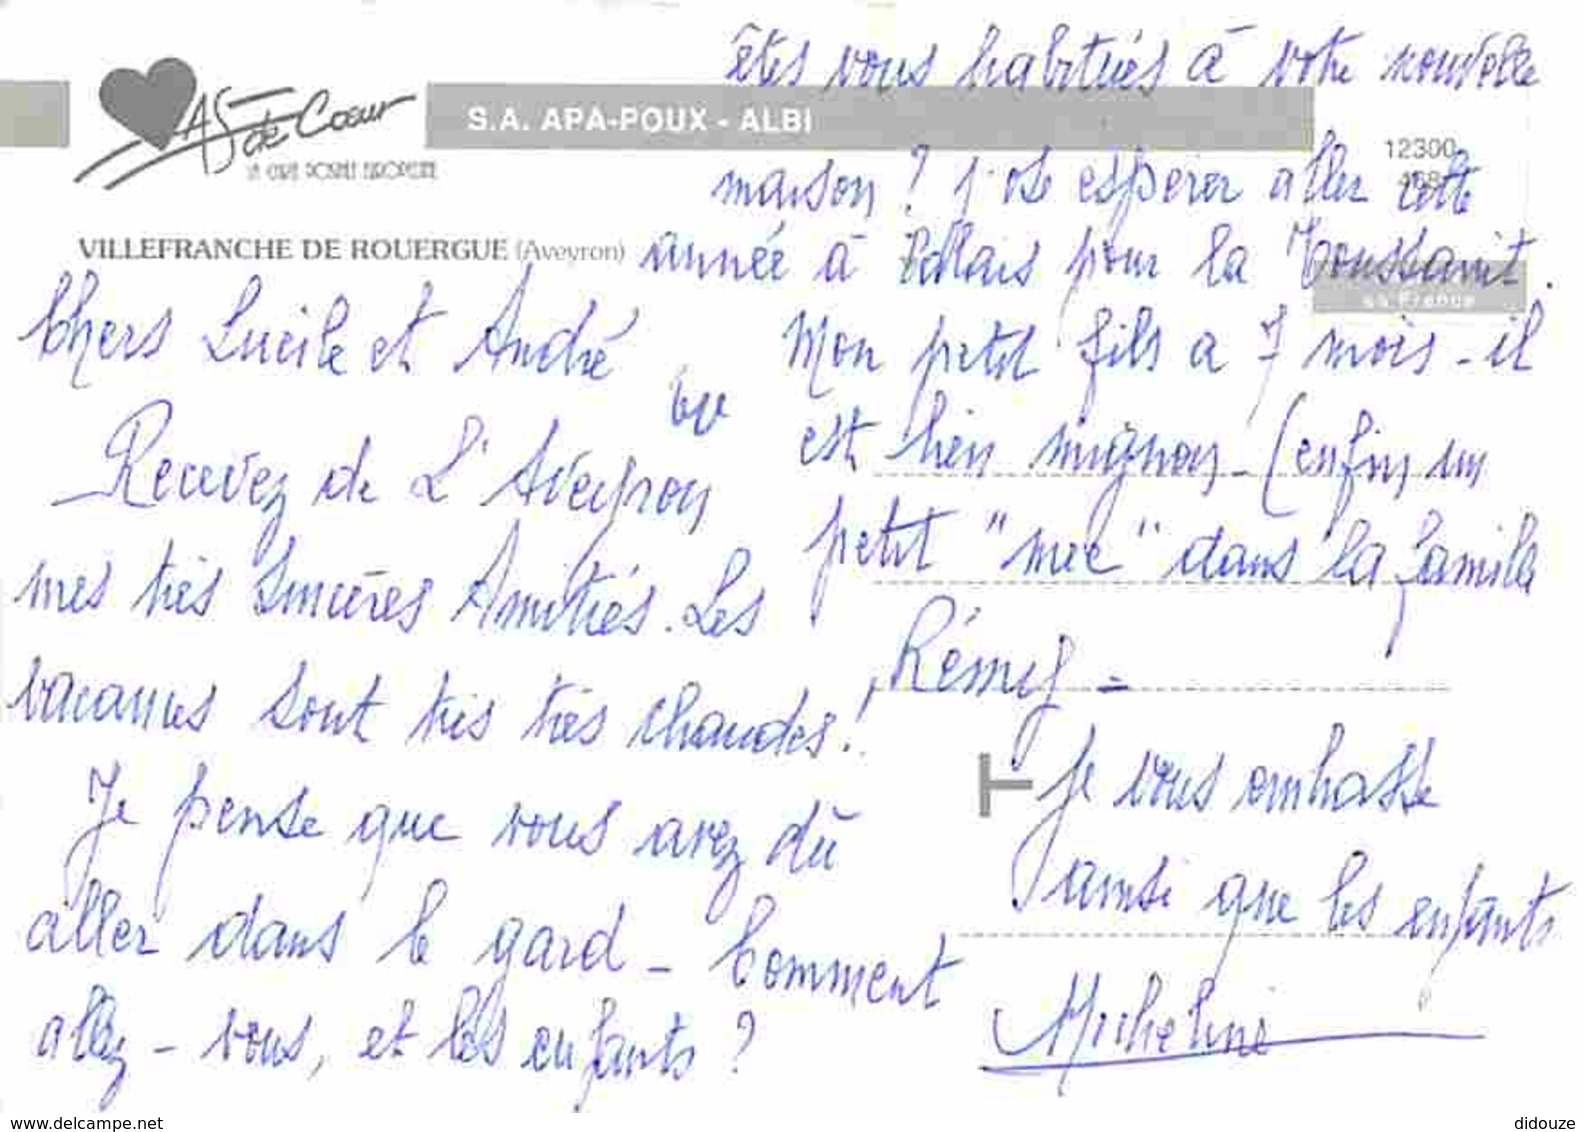 As de Cœur
LA CARTE POSTALE EUROPEENNE
S.A. APA-POUX - ALBI
12300
VILLEFRANCHE DE ROUERGUE (Aveyron)
Chers Lucile et André
Recevez de L'Aveyron
mes très Sincères Amitiés. Les
vacances sont très très chaudes!
Je pense que vous avez dû
aller dans le gard - Comment
allez-vous, et les enfants ?
êtes vous habitués à votre nouvelle
maison ? j'ose espérer aller cette
année à pour la Toussaint.
Mon petit fils a 7 mois - il
est bien mignon - (enfin un
petit "mec" dans la famille
Rémy -
Je vous embrasse
ainsi que les enfants
Micheline
www.delcampe.net
didouze